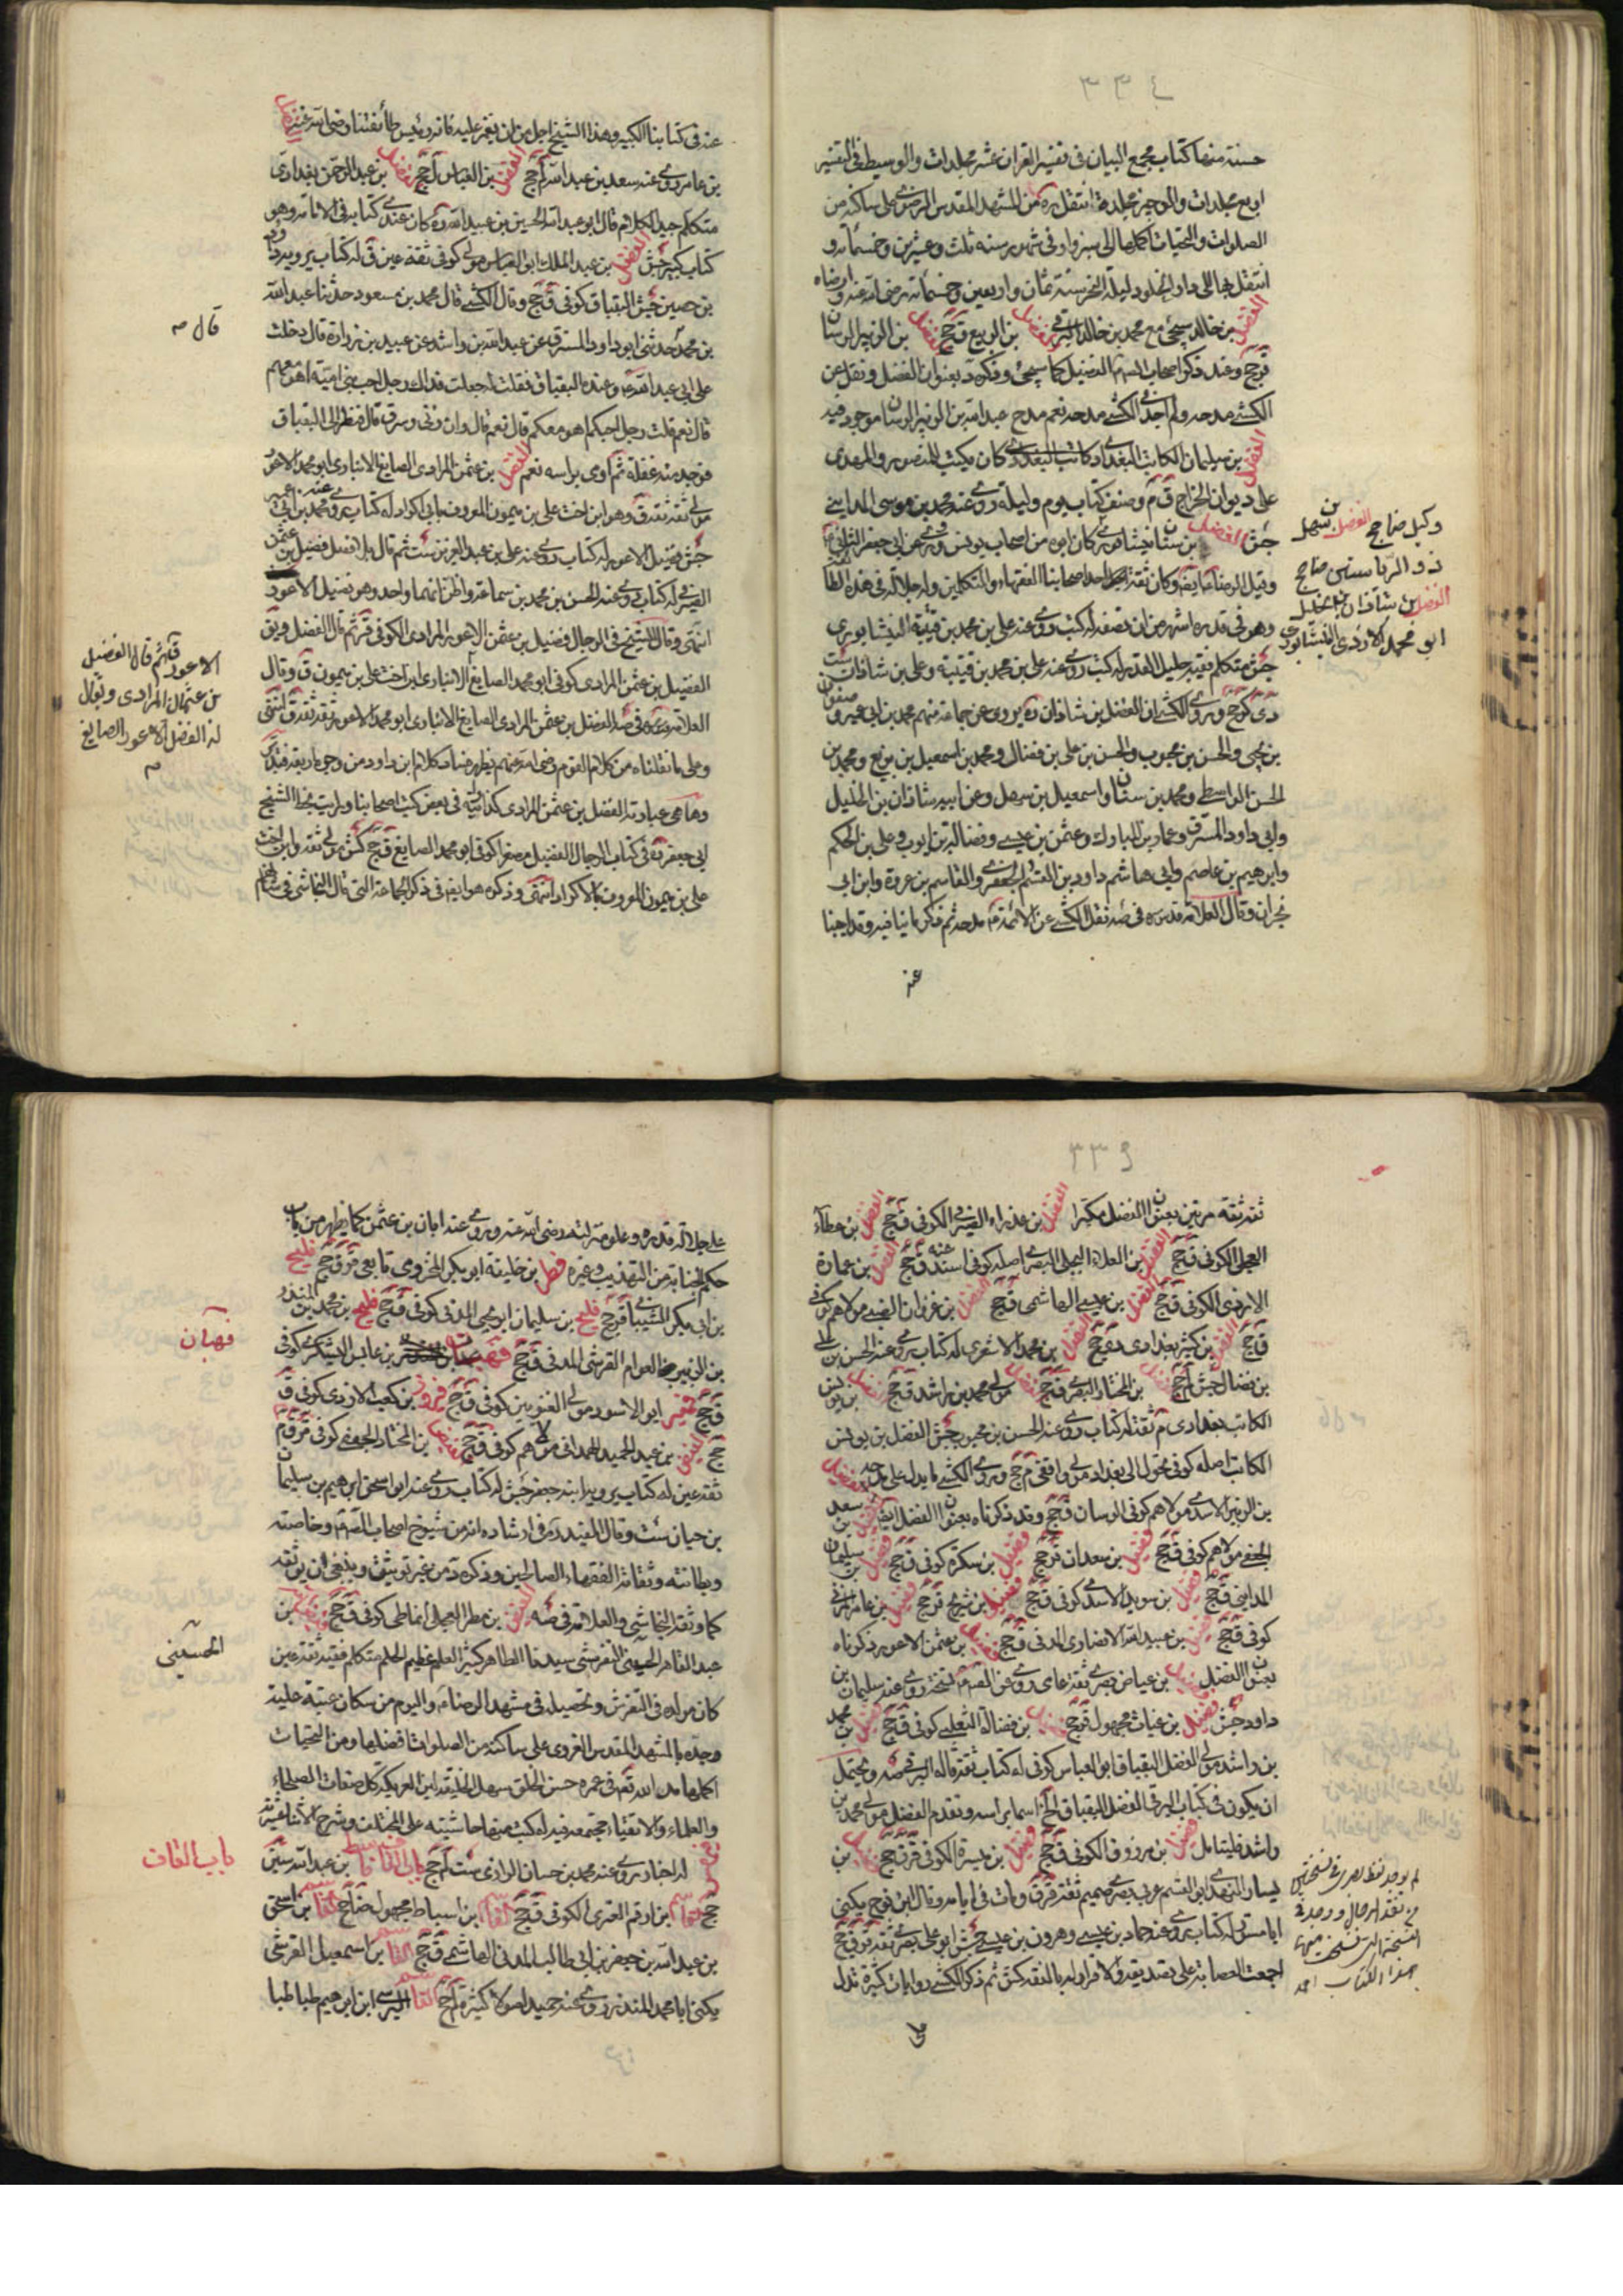 ٣٣٤
حسنة منها كتاب مجمع البيان في تفسير القرآن عشر مجلدات والوسيط في التفسير
اربع مجلدات والوجيز مجلدة انتقل ره من المشهد المقدس الرضوي على ساكنه من
الصلوات والتحيات اكملها الى سبزوار في شهور سنة ثلث وعشرين وخمسمائة و
انتقل بها الى دار الخلود ليلة النحر سنة ثمان واربعين وخمسمائة رضي الله عنه وارضاه
الفضل بن خالد سيجئ مع محمد بن خالد البرقي الفضل بن الربيع ق جخ الفضل بن الزبير الرسان
قر جخ وعند ذكر اصحاب الفضيل كما سيجئ وذكره د بعنوان الفضل ونقل عن
الكشي مدحه ولم اجد في الكشي مدحه نعم مدح عبد الله بن الزبير الرسان موجود فيه
الفضل بن سليمان الكاتب البغدادي كاتب البغدادي كان يكتب للمنصور والمهدي
على ديوان الخراج ق م وصنف كتاب يوم وليلة روى عنه محمد بن موسى المدايني
جش الفضل بن شاذان نيشابوري كان ابوه من اصحاب يونس وروى عن ابي جعفر الثاني
وقيل الرضا ايضا وكان ثقة اجل اصحابنا الفقهاء والمتكلمين وله جلالة في هذه الطائفة
وهو في قدره اشهر من ان نصفه له كتب روى عنه علي بن محمد بن قتيبة النيشابوري
جش متكلم فقيه جليل القدر له كتب روى عنه علي بن محمد بن قتيبة وعلي بن شاذان ست
دي كر جخ وروى الكشي ان الفضل بن شاذان ره يروي عن جماعة منهم محمد بن ابي عمير وصفوان
بن يحيى والحسن بن محبوب والحسن بن علي بن فضال ومحمد بن اسمعيل بن بزيع ومحمد بن
الحسن الواسطي ومحمد بن سنان واسمعيل بن سهل وعن ابيه شاذان بن الخليل
وابي داود المسترق وعمار بن المبارك وعثمن بن عيسى وفضالة بن ايوب وعلي بن الحكم
وابرهيم بن عاصم وابي هاشم داود بن القسم الجعفري والقاسم بن عروة وابن ابي
نجران وقال العلامة قدس سره في صه نقل الكشي عن الائمة مدحه ثم ذكر ما ينافيه وقد اجبنا
عنه
وكيل ضا جخ الفضل بن سهل
ذو الرياستين ضا جخ
الفضل بن شاذان بن الخليل
ابو محمد الازدي النيشابوري
عنه في كتابنا الكبير وهذا الشيخ اجل من ان يغمز عليه فانه رئيس طائفتنا رضي الله عنه
بن عامر روى عنه سعد بن عبد الله لم جخ الفضل بن العباس لم جخ الفضل بن عبد الرحمن بغدادي
متكلم جيد الكلام قال ابو عبد الله الحسين بن عبيد الله ره كان عندي كتابه في الامامة وهو
كتاب كبير جش الفضل بن عبد الملك ابو العباس مولى كوفي ثقة عين ق له كتاب يرويه داود
بن حصين جش البقباق كوفي ق جخ وقال الكشي قال محمد بن مسعود حدثنا عبد الله
بن محمد حدثني ابو داود المسترق عن عبد الله بن راشد عن عبيد بن زرارة قال دخلت
على ابي عبد الله ع وعنده البقباق فقلت له جعلت فداك رجل احب بني امية اهو معهم
قال نعم قلت رجل احبكم اهو معكم قال نعم قال وان زنى وسرق قال فنظر الى البقباق
فوجد منه غفلة ثم اومى براسه نعم الفضل بن عثمن المرادي الصايغ الانباري ابو محمد الاعور
مولى ثقة ثقة ق وهو ابن اخت علي بن ميمون المعروف بابي الاكراد له كتاب روى عنه محمد بن ابي عمير
جش فضيل الاعور له كتاب روى عنه علي بن عبد العزيز ست ثم قال بلا فصل فضيل بن عثمن
الصيرفي له كتاب روى عنه الحسن بن محمد بن سماعة واظن انهما واحد وهو فضيل الاعور
انتهى وقال الشيخ في الرجال فضيل بن عثمن الاعور المرادي الكوفي قر ثم قال الفضل ويق
الفضيل بن عثمن المرادي كوفي ابو محمد الصايغ الانباري ابن اخت علي بن ميمون ق وقال
العلامة قدس سره في صه الفضل بن عثمن المرادي الصايغ الانباري ابو محمد الاعور ثقة ثقة ق انتهى
وعلى ما نقلناه من كلام القوم رضي الله عنهم يظهر ما في كلام ابن داود من وجوه اربعة فتدبر
وها هي عبارته الفضل بن عثمن المرادي كذا رايته في بعض كتب اصحابنا ورايت بخط الشيخ
ابي جعفر ره في كتاب الرجال الفضيل مصغرا كوفي ابو محمد الصايغ ق جخ كش مولى ثقة وابن اخت
علي بن ميمون المعروف بالاكراد انتهى وذكره هو ايضا في ذكر الجماعة التي قال النجاشي في شانهم
قال م
الاعور ق جخ ثم قال الفضيل
بن عثمان المرادي ويقال
له الفضل الاعور الصايغ
م
٣٣٥
ثقة ثقة مرتين بعنوان الفضل مكبرا الفضل بن عذراء الصيرفي الكوفي ق جخ الفضل بن عطاء
العجلي الكوفي ق جخ الفضل بن العلاء البجلي البصري اصله كوفي اسند عنه ق جخ الفضل بن عمارة
الازدي الكوفي ق جخ الفضل بن عيسى الهاشمي ق جخ الفضل بن غزوان الضبي مولاهم كوفي
ق جخ الفضل بن كثير بغدادي دي جخ الفضل بن محمد الاشعري له كتاب روى عنه الحسن بن علي
بن فضال جش لم جخ الفضل بن المختار البصري ق جخ الفضل مولى محمد بن راشد ق جخ الفضل بن يونس
الكاتب بغدادي م ثقة له كتاب روى عنه الحسن بن محبوب جش الفضل بن يونس
الكاتب اصله كوفي تحول الى بغداد مولى واقفي م جخ وروى الكشي ما يدل على مدحه الفضيل
بن الزبير الاسدي مولاهم كوفي الرسان ق جخ وقد ذكرناه بعنوان الفضل ايضا فضيل بن سعد
الجعفي مولاهم كوفي ق جخ فضيل بن سعدان قر جخ فضيل بن سكرة كوفي ق جخ فضيل بن سليمان
المدايني ق جخ فضيل بن سويد الاسدي كوفي ق جخ فضيل بن شريح قر جخ فضيل بن عامر
كوفي ق جخ فضيل بن عبيد الله الانصاري المدني ق جخ فضيل بن عثمن الاعور ذكرناه
بعنوان الفضل فضيل بن عياض بصري ثقة عامي روى عن الصادق ع نسخة روى عنه سليمان بن
داود جش فضيل بن غياث مجهول قر جخ فضيل بن فضالة الثعلبي كوفي ق جخ فضيل بن محمد
بن راشد مولى الفضل البقباق ابو العباس كوفي له كتاب ثقة قاله البرقي صه ويحتمل
ان يكون في كتاب البرقي الفضل البقباق الخ اسما براسه وتقدم الفضل مولى محمد بن
راشد فليتامل فضيل بن مرزوق الكوفي ق جخ فضيل بن ميسرة الكوفي قر ق جخ فضيل بن
يسار النهدي ابو القسم عربي بصري صميم ثقة قر ق ومات في ايامه وقال ابن نوح يكنى
ابا مسور له كتاب روى عنه حماد بن عيسى وهرون بن عيسى جش ابو علي بصري ثقة قر ق جخ
اجمعت العصابة على تصديقه والاقرار له بالفقه كش ثم ذكر الكشي روايات كثيرة تدل
على
لم يوجد لفظ بصري في نسختي
من نقد الرجال ووجدته في
النسخة التي نسخت منها
هذا الكتاب احمد
على جلالة قدره وعلو منزلته رضي الله عنه وروى عنه ابان بن عثمن كما يظهر من باب
حكم الجنابة من التهذيب وغيره فطر بن خليفة ابو بكر المخزومي تابعي قر ق جخ فليح
بن ابي بكر الشيباني قر جخ فليح بن سليمان ابو يحيى المدني كوفي ق جخ فليح بن محمد بن المنذر
بن الزبير بن العوام القرشي المدني ق جخ بن عابس اليشكري كوفي
ق جخ ابو الاسود مولى الغنويين كوفي ق جخ فيروز بن كعب الازدي كوفي ق
جخ الفيض بن عبد الحميد الهمداني مولاهم كوفي ق جخ الفيض بن المختار الجعفي كوفي قر ق م
ثقة عين له كتاب يرويه ابنه جعفر جش له كتاب روى عنه ابو اسحق ابرهيم بن سليمان
بن حيان ست وقال المفيد ره في ارشاده انه من شيوخ اصحاب الصادق ع وخاصته
وبطانته وثقاته الفقهاء الصالحين وذكره د من غير توثيق وينبغي ان يوثقه
كما وثقه النجاشي والعلامة في صه الفيض بن مطر العجلي انماطي كوفي ق جخ فيض الله بن
عبد القاهر الحسيني التفرشي سيدنا الطاهر كثير العلم عظيم الحلم متكلم فقيه ثقة عين
كان مولده في التفرش وتحصيله في مشهد الرضا ع واليوم من سكان عتبة علية
وجده بالمشهد المقدس الغروي على ساكنه من الصلوات افضلها ومن التحيات
اكملها مد الله تعالى في عمره حسن الخلق سهل الخليقة لين العريكة كل صفات الصلحاء
والعلماء والاتقياء مجتمعة فيه له كتب منها حاشيته على المختلف وشرح الاثناعشرية
له اخبار روى عنه محمد بن حسان الرازي ست لم جخ باب القاف بن عبد الله سين
جخ القاسم بن ارقم العنزي الكوفي ق جخ القاسم بن اسباط مجهول ضا جخ القاسم بن اسحق
بن عبد الله بن جعفر بن ابي طالب المدني الهاشمي ق جخ القاسم بن اسمعيل القرشي
يكنى ابا محمد المنذر روى عنه حميد اصولا كثيرة لم جخ القاسم الرسي ابن ابرهيم طباطبا
فهيان
الحسيني
باب القاف